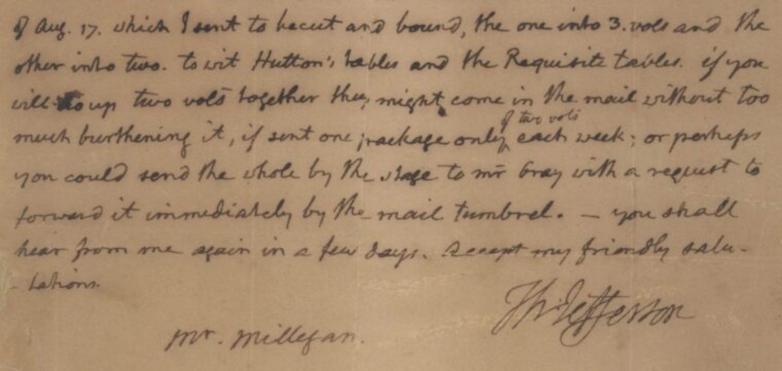 of Aug. 17. which I sent to be cut and bound, the one into 3. vols and the
other into two. to wit Hutton's tables and the Requisite tables. if you
will do up two vols together they might come in the mail without too
much burthening it, if sent one package only of two vols each week; or perhaps
you could send the whole by the stage to mr Gray with a request to
forward it immediately by the mail tumbrel. — you shall
hear from me again in a few days. Accept my friendly salu-
-tations.
Th: Jefferson
Mr. Milligan.